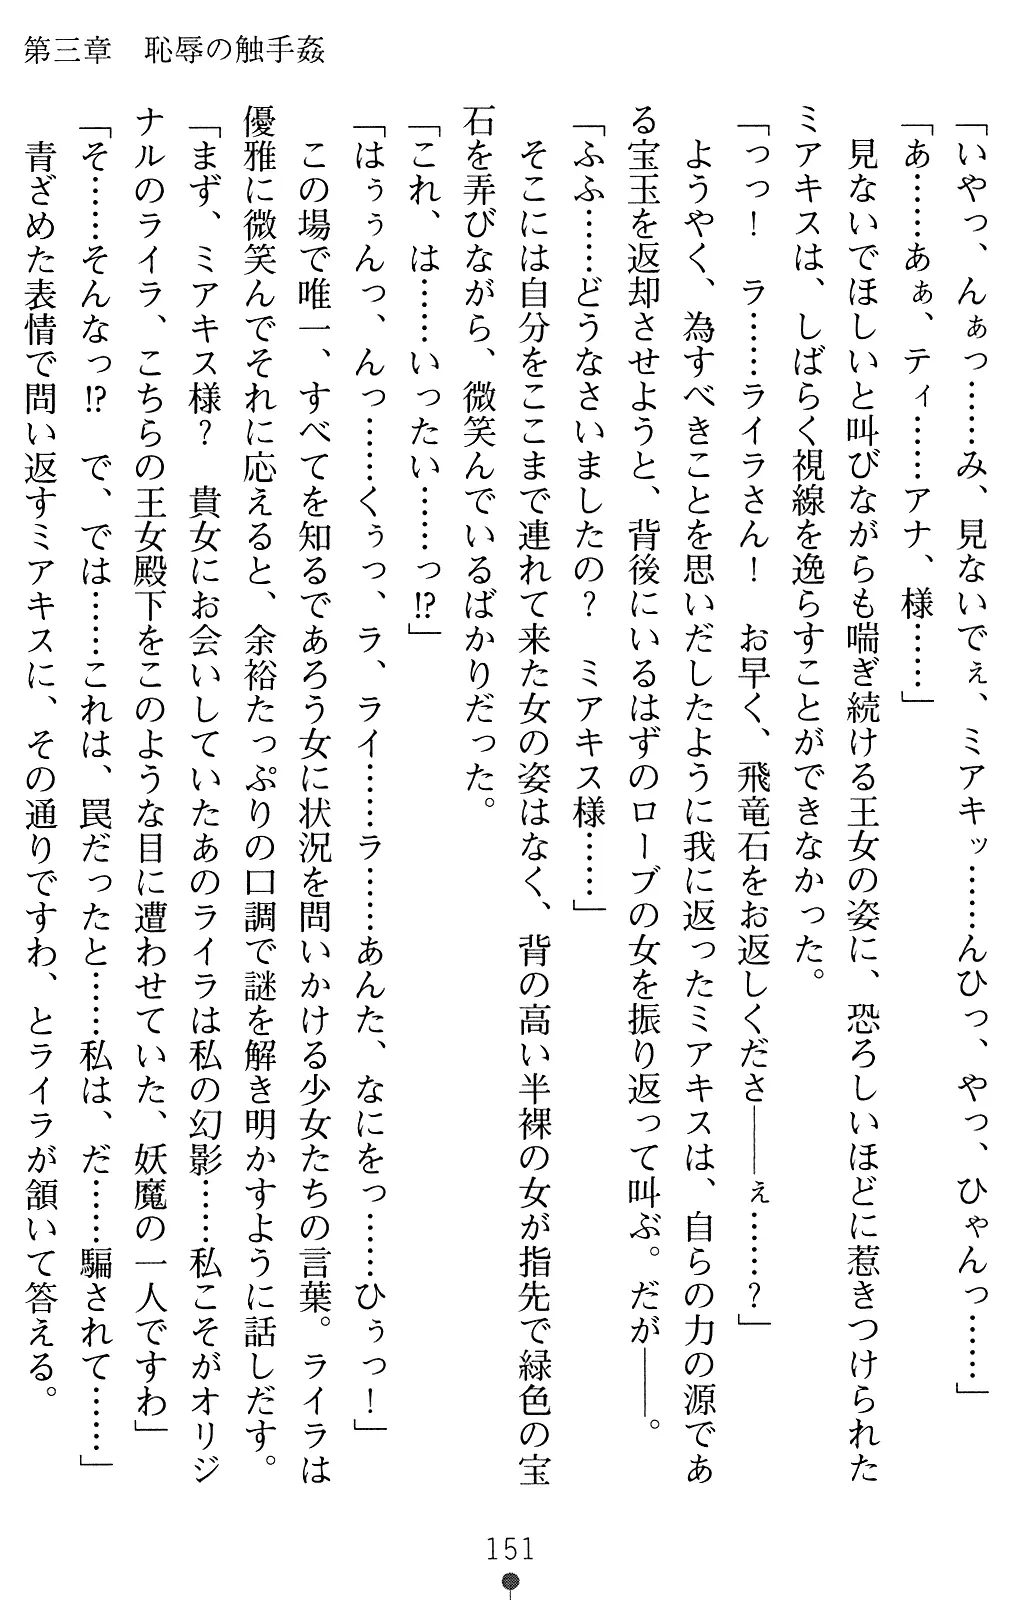 第三章　恥辱の触手姦
「いやっ、んぁっ……み、見ないでぇ、ミアキッ……んひっ、やっ、ひゃんっ……」
「あ……あぁ、ティ……アナ、様……」
　見ないでほしいと叫びながらも喘ぎ続ける王女の姿に、恐ろしいほどに惹きつけられた
ミアキスは、しばらく視線を逸らすことができなかった。
「っっ！　ラ……ライラさん！　お早く、飛竜石をお返しくださ――ぇ……？」
　ようやく、為すべきことを思いだしたように我に返ったミアキスは、自らの力の源であ
る宝玉を返却させようと、背後にいるはずのローブの女を振り返って叫ぶ。だが――。
「ふふ……どうなさいましたの？　ミアキス様……」
　そこには自分をここまで連れて来た女の姿はなく、背の高い半裸の女が指先で緑色の宝
石を弄びながら、微笑んでいるばかりだった。
「これ、は……いったい……っ!?」
「はぅぅんっ、んっ……くぅっ、ラ、ライ……ラ……あんた、なにをっ……ひぅっ！」
　この場で唯一、すべてを知るであろう女に状況を問いかける少女たちの言葉。ライラは
優雅に微笑んでそれに応えると、余裕たっぷりの口調で謎を解き明かすように話しだす。
「まず、ミアキス様？　貴女にお会いしていたあのライラは私の幻影……私こそがオリジ
ナルのライラ、こちらの王女殿下をこのような目に遭わせていた、妖魔の一人ですわ」
「そ……そんなっ!?　で、では……これは、罠だったと……私は、だ……騙されて……」
　青ざめた表情で問い返すミアキスに、その通りですわ、とライラが頷いて答える。
151